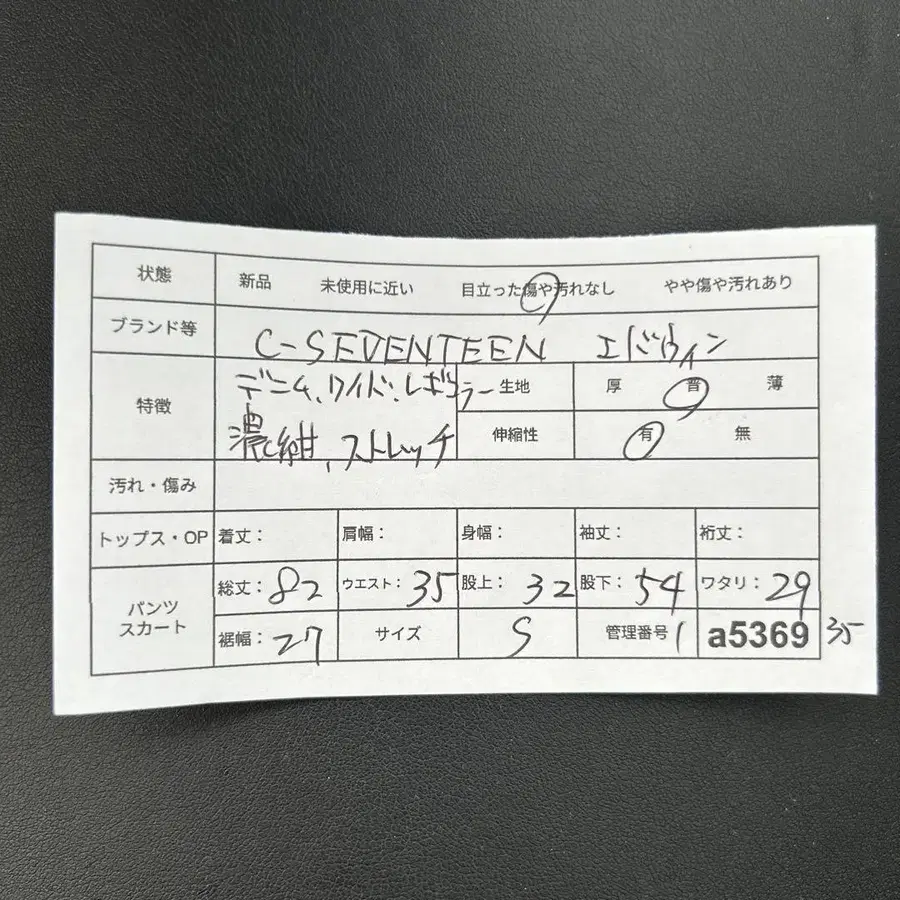 状態 新品 未使用に近い 目立った傷や汚れなし やや傷や汚れあり
ブランド等 C-SEVENTEEN エドウィン
特徴 デニム、ワイド、レギュラー 生地 厚 普 薄
濃紺、ストレッチ 伸縮性 有 無
汚れ・傷み
トップス・OP 着丈： 肩幅： 身幅： 袖丈： 裄丈：
パンツ スカート 総丈：82 ウエスト：35 股上：32 股下：54 ワタリ：29
裾幅：27 サイズ S 管理番号 1 a5369 35